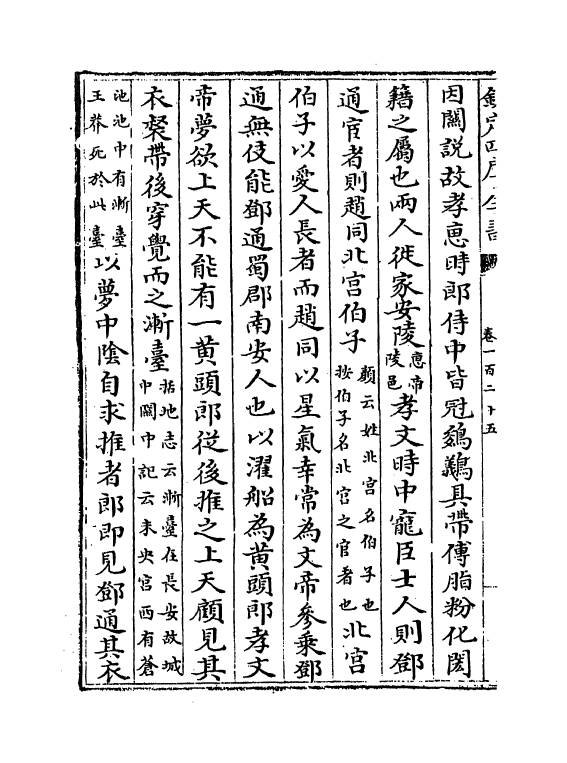 欽定四庫全書 卷一百二十五
因關說故孝惠時郎侍中皆冠鵔鸃具帶傅脂粉化閎
籍之屬也兩人徙家安陵惠帝陵邑孝文時中寵臣士人則鄧
通宦者則趙同北宫伯子顔云姓北宫名伯子也按伯子名北宫之官者也北宫
伯子以愛人長者而趙同以星氣幸常為文帝參乘鄧
通無伎能鄧通蜀郡南安人也以濯船為黄頭郎孝文
帝夢欲上天不能有一黄頭郎從後推之上天顧見其
衣裻帶後穿覺而之漸臺括地志云漸臺在長安故城中關中記云未央宫西有蒼
池池中有漸臺王莽死於此臺以夢中陰自求推者郎即見鄧通其衣